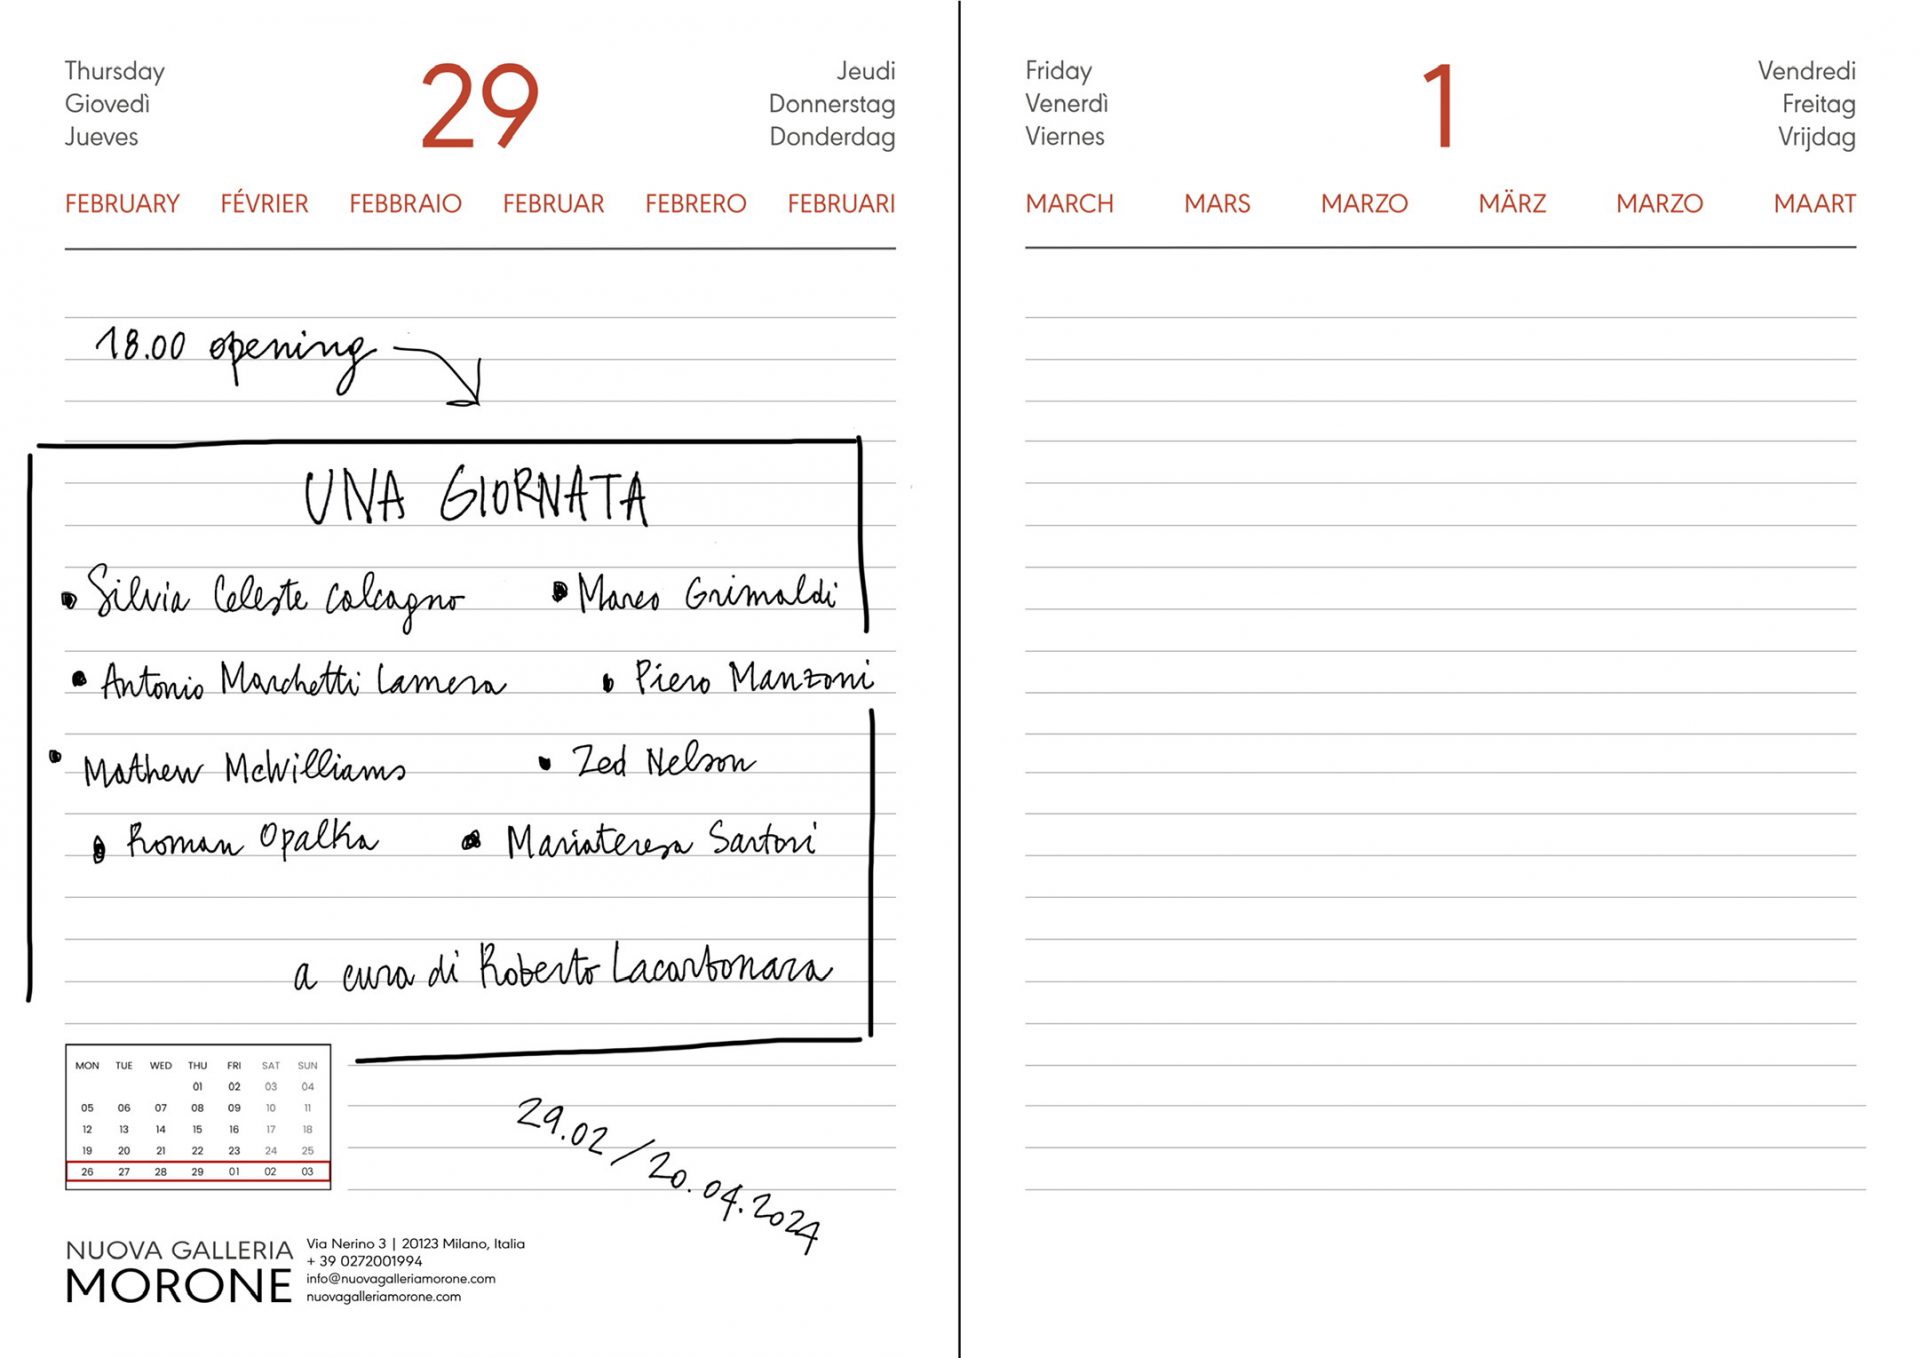 Thursday 29 Jeudi
Giovedì Donnerstag
Jueves Donderdag
FEBRUARY FÉVRIER FEBBRAIO FEBRUAR FEBRERO FEBRUARI
18.00 opening
UNA GIORNATA
Silvia Celeste Calcagno • Marco Grimaldi
• Antonio Marchetti Lamera • Piero Manzoni
• Mathew McWilliams • Zed Nelson
• Roman Opalka • Mariateresa Sartori
a cura di Roberto Lacarbonara
MON TUE WED THU FRI SAT SUN
01 02 03 04
05 06 07 08 09 10 11
12 13 14 15 16 17 18
19 20 21 22 23 24 25
26 27 28 29 01 02 03
29.02/20.04.2024
NUOVA GALLERIA
MORONE
Via Nerino 3 | 20123 Milano, Italia
+ 39 0272001994
info@nuovagalleriamorone.com
nuovagalleriamorone.com
Friday 1 Vendredi
Venerdì Freitag
Viernes Vrijdag
MARCH MARS MARZO MÄRZ MARZO MAART